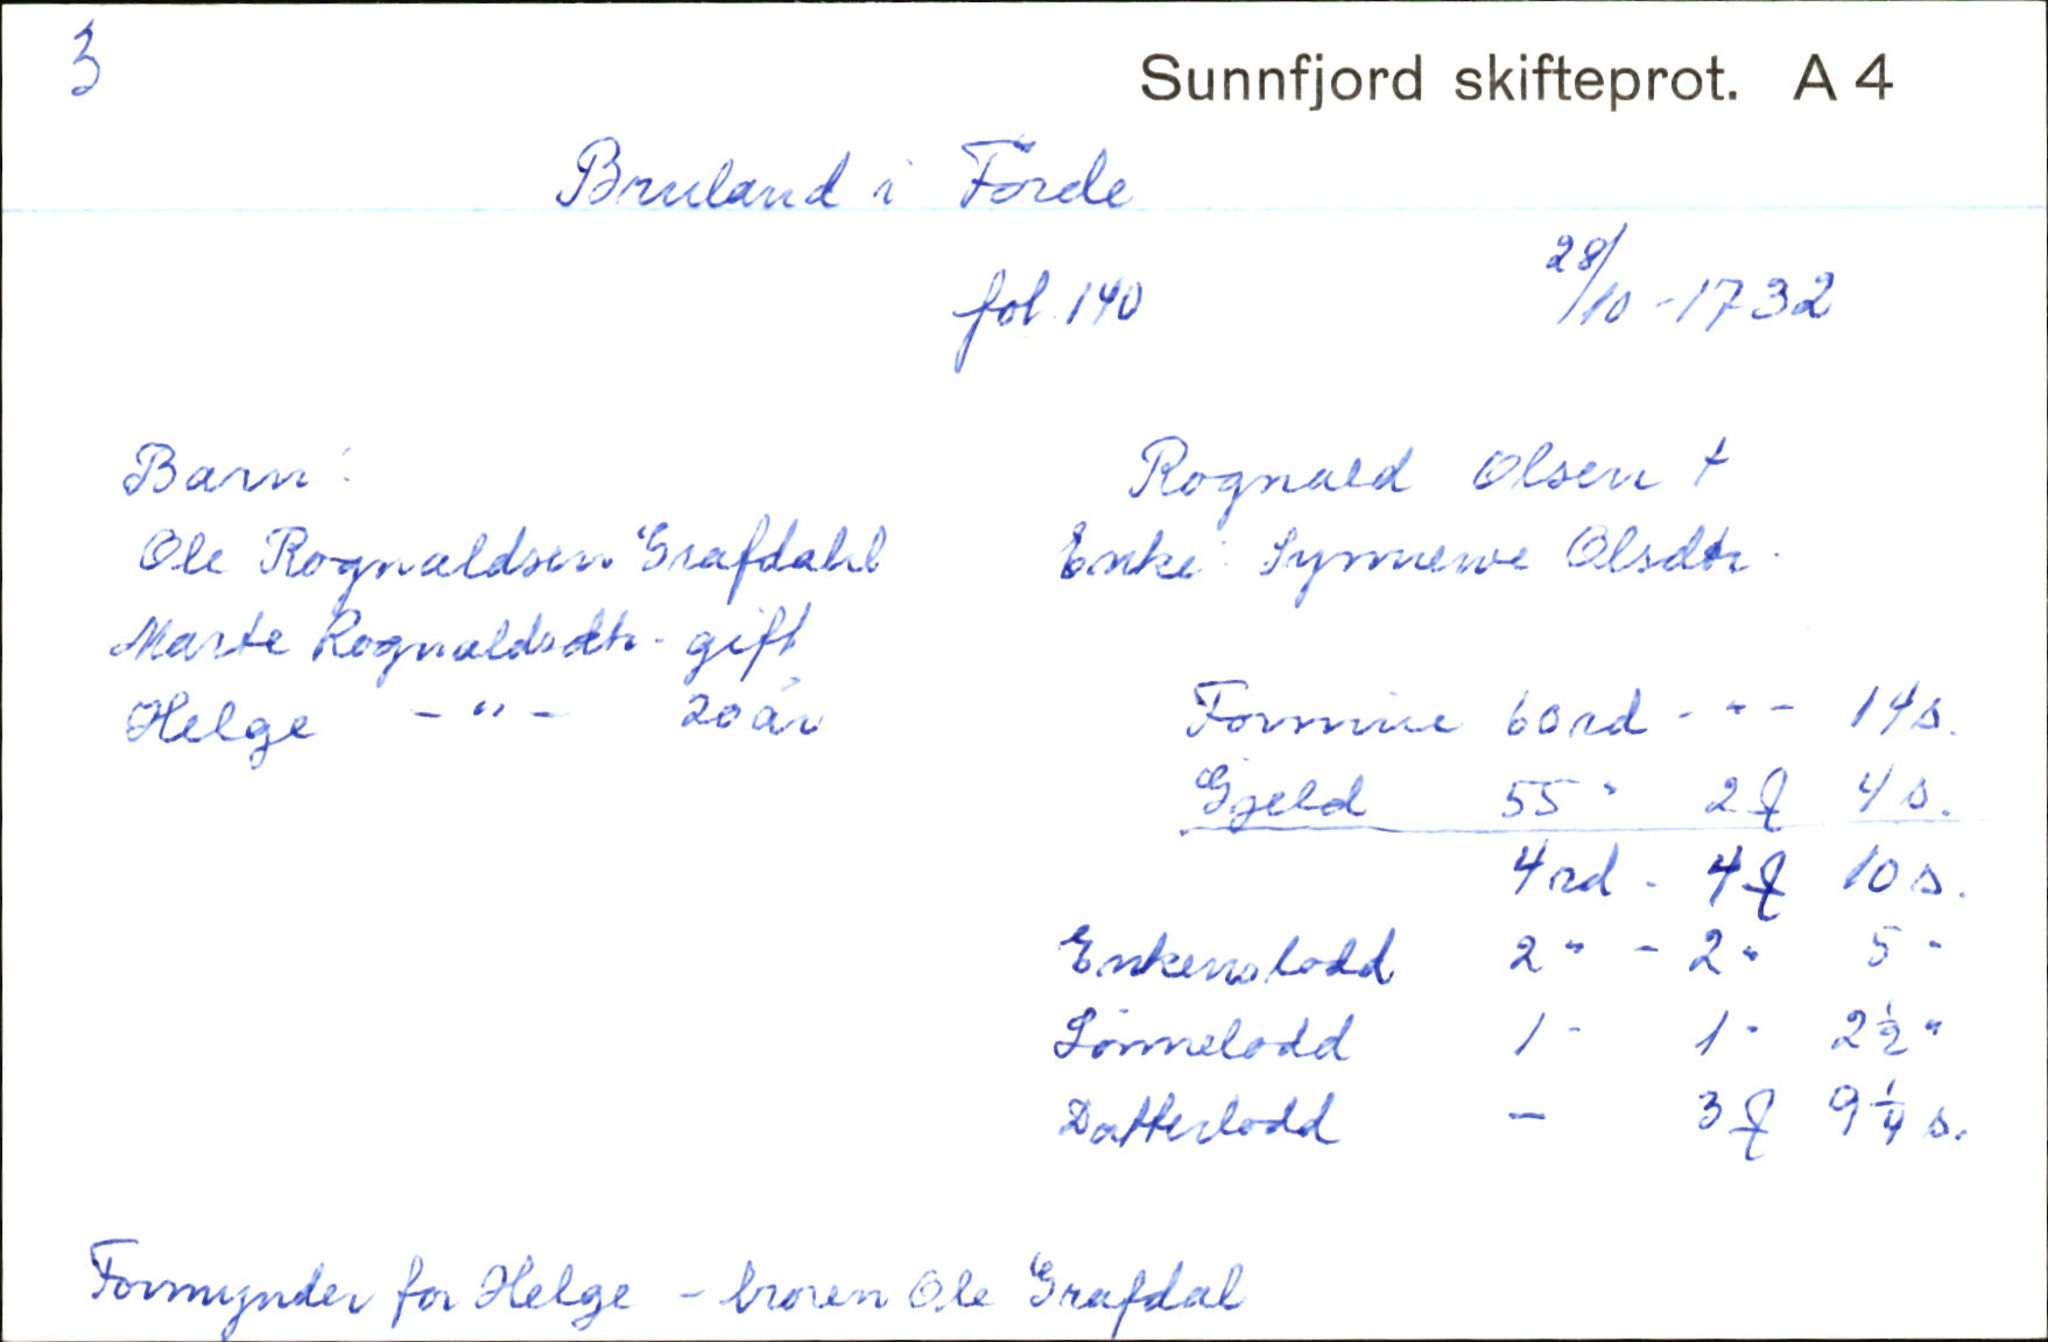 3
Sunnfjord skifteprot. A 4
Bruland i Förde
fol. 140 28/10 - 1732
Barn:
Ole Rognaldsen Grafdahl
Marte Rognaldsdtr. gift
Helge - " - 20 år
Rognald Olsen †
Enke: Synnewe Olsdtr.
Formue 60 rd - " - 14 s.
Gjeld 55 " 2 ꝗ 4 s.
4 rd - 4 ꝗ 10 s.
Enkens lodd 2 " - 2 " 5 "
Sönnelodd 1 " 1 " 2 ½ "
Datterlodd - 3 ꝗ 9 ¼ s.
Formynder for Helge - broren Ole Grafdal